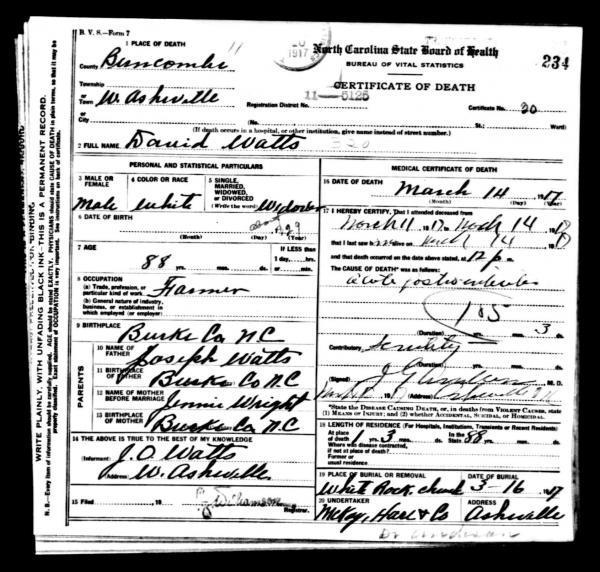 B. V. S.—Form 7
1 PLACE OF DEATH
County Buncombe
Township
or
Town W. Asheville
or
City
1917
North Carolina State Board of Health
BUREAU OF VITAL STATISTICS
CERTIFICATE OF DEATH
234
Registration District No. 11—5125 Certificate No. 20
St.; Ward)
(If death occurs in a hospital, or other institution, give name instead of street number.)
2 FULL NAME David Watts
PERSONAL AND STATISTICAL PARTICULARS
3 MALE OR FEMALE
Male
4 COLOR OR RACE
White
5 SINGLE, MARRIED, WIDOWED OR DIVORCED
(Write the word) Widower
6 DATE OF BIRTH
(Month) (Day) (Year)
7 AGE
88 yrs. mos. ds.
IF LESS than
1 day, hrs.
or min.
8 OCCUPATION
(a) Trade, profession, or
particular kind of work Farmer
(b) General nature of industry,
business, or establishment in
which employed (or employer)
9 BIRTHPLACE
Burke Co N C
PARENTS
10 NAME OF FATHER Joseph Watts
11 BIRTHPLACE OF FATHER Burke Co N C
12 NAME OF MOTHER BEFORE MARRIAGE Jennie Wright
13 BIRTHPLACE OF MOTHER Burke Co N.C
14 THE ABOVE IS TRUE TO THE BEST OF MY KNOWLEDGE
(Informant) J. O. Watts
(Address) W. Asheville
15 Filed , 19
Registrar.
MEDICAL CERTIFICATE OF DEATH
16 DATE OF DEATH
March 14 1917
(Month) (Day) (Year)
17 I HEREBY CERTIFY, That I attended deceased from
March 11 1917 to March 14 1917
that I last saw alive on March 14 191
and that death occurred on the date above stated, at 12 p m.
The CAUSE OF DEATH* was as follows:
105
(Duration) yrs. mos. 3 ds.
Contributory Senility
(Duration) yrs. mos. ds.
(Signed) M. D.
(Address) Asheville N C
*State the DISEASE CAUSING DEATH, or, in deaths from VIOLENT CAUSES, state
(1) MEANS OF INJURY; and (2) whether ACCIDENTAL, SUICIDAL, or HOMICIDAL.
18 LENGTH OF RESIDENCE (For Hospitals, Institutions, Transients or Recent Residents)
At place of death 1 yrs. 3 mos. ds. In the State 88 yrs. mos. ds.
Where was disease contracted,
if not at place of death?
Former or
usual residence
19 PLACE OF BURIAL OR REMOVAL
White Rock church
DATE OF BURIAL
3-16 17
20 UNDERTAKER
McKoy, Hare & Co
ADDRESS
Asheville
WRITE PLAINLY, WITH UNFADING BLACK INK—THIS IS A PERMANENT RECORD.
N. B.—Every item of information should be carefully supplied. AGE should be stated EXACTLY. PHYSICIANS should state CAUSE OF DEATH in plain terms, so that it may be
properly classified. Exact statement of OCCUPATION is very important. See instructions on back of certificate.